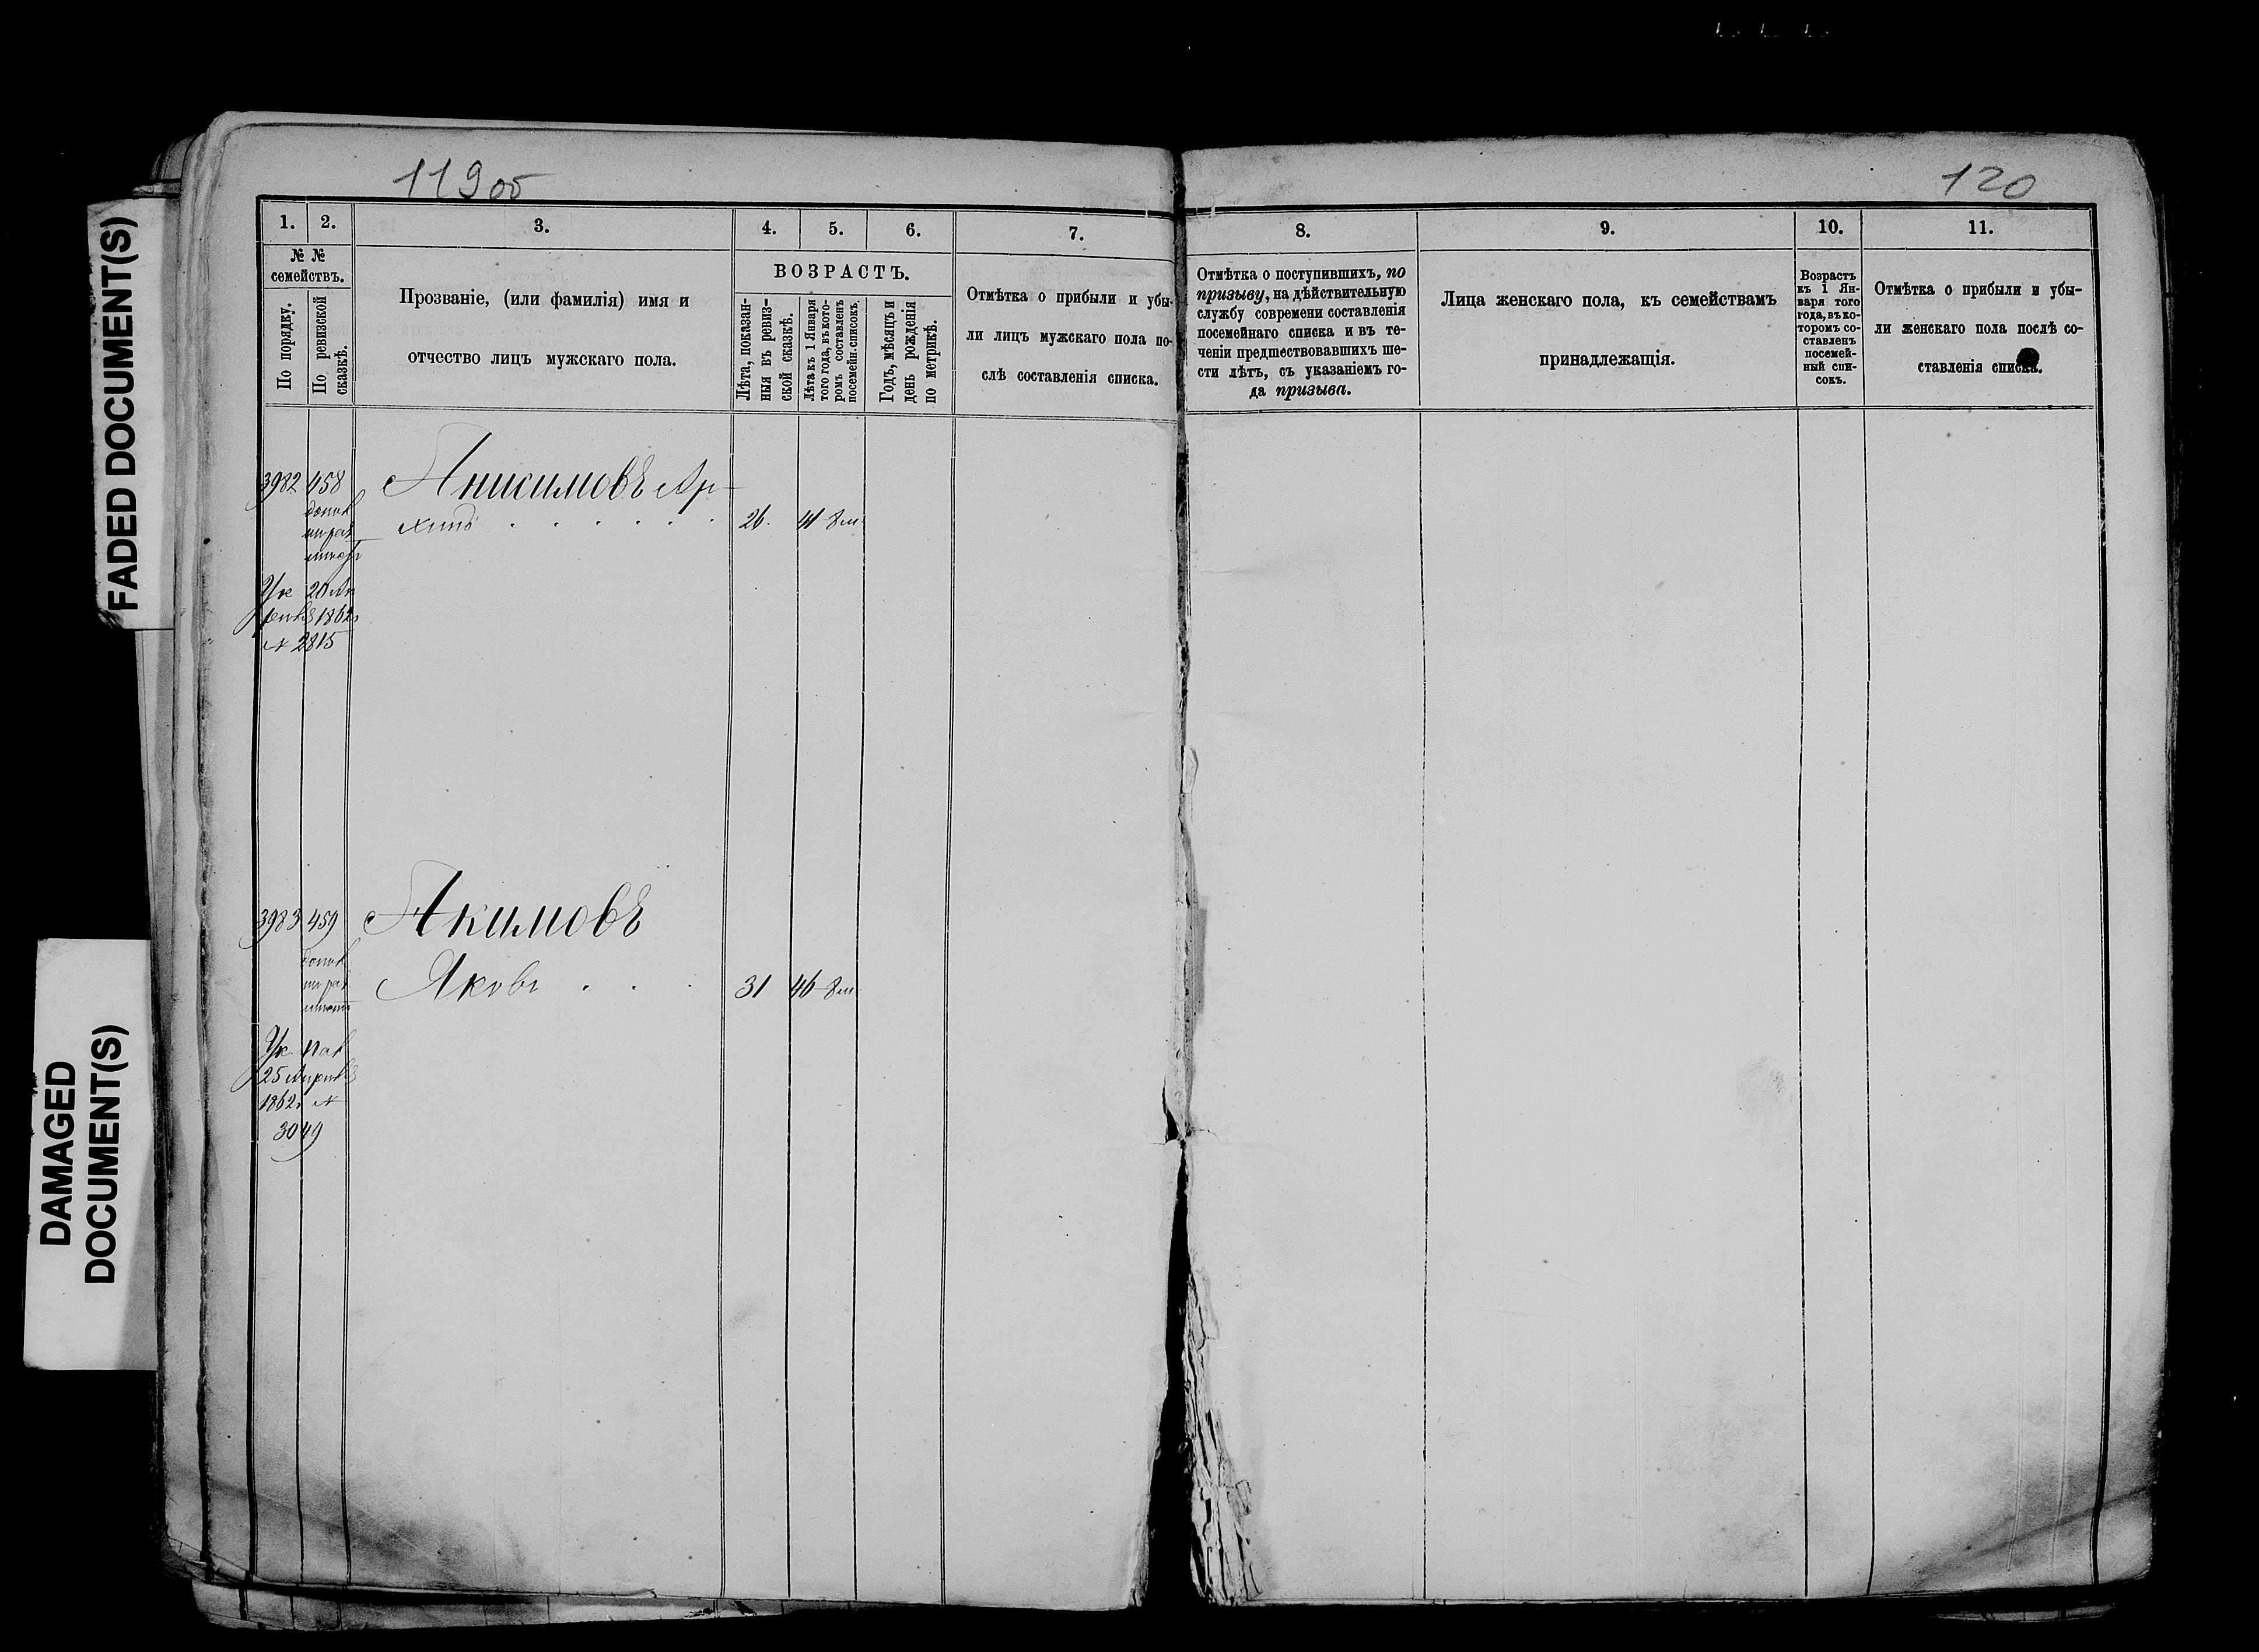 119об
120
FADED DOCUMENT(S)
DAMAGED
DOCUMENT(S)
1.
2.
3.
4.
5.
6.
7.
№ №
семействъ.
По порядку.
По ревизской
сказкѣ.
Прозваніе, (или фамилія) имя и
отчество лицъ мужскаго пола.
ВОЗРАСТЪ.
Лѣта, показан-
ныя въ ревиз-
ской сказкѣ.
Лѣта къ 1 Января
того года, въ кото-
ромъ составленъ
посемейн. списокъ.
Годъ, мѣсяцъ и
день рожденія
по метрикѣ.
Отмѣтка о прибыли и убы-
ли лицъ мужскаго пола по-
слѣ составленія списка.
8.
9.
10.
11.
Отмѣтка о поступившихъ, по
призыву, на дѣйствительную
службу современи составленія
посемейнаго списка и въ те-
ченіи предшествовавшихъ ше-
сти лѣтъ, съ указаніемъ го-
да призыва.
Лица женскаго пола, къ семействамъ
принадлежащія.
Возрастъ
къ 1 Ян-
варя того
года, въ ко-
торомъ со-
ставленъ
посемей-
ный спи-
сокъ.
Отмѣтка о прибыли и убы-
ли женскаго пола послѣ со-
ставленія списка.
3982 458 Анисимовъ Ар-
хипъ 26. 41
Ук 20
1862г
№ 2815
3983 459 Акимовъ
Яковъ 31 46
Ук Пал
25 Апрѣля
1862г №
3049